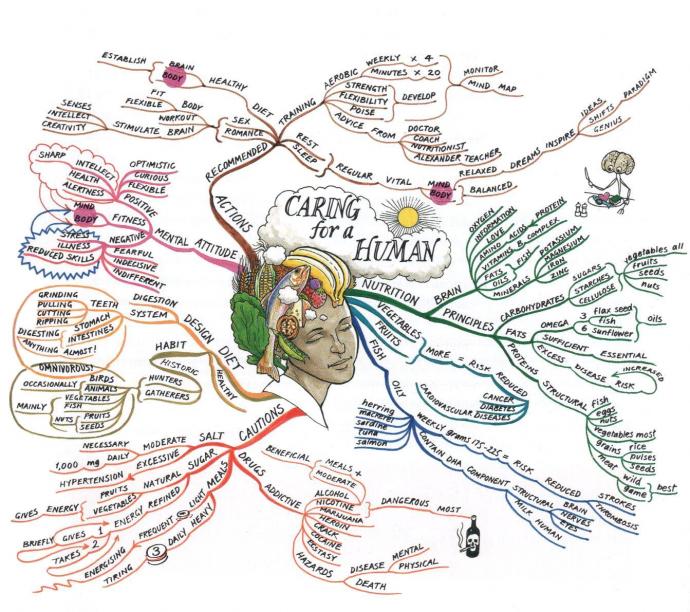 CARING
for a
HUMAN
RECOMMENDED
ACTIONS
TRAINING
AEROBIC
WEEKLY X 4
MINUTES X 20
MONITOR
MIND MAP
STRENGTH
FLEXIBILITY
POISE
DEVELOP
ADVICE FROM
DOCTOR
COACH
NUTRITIONIST
ALEXANDER TEACHER
REST
SLEEP
REGULAR
VITAL
MIND
BODY
RELAXED
BALANCED
DREAMS
INSPIRE
IDEAS
SHIFTS
PARADIGM
GENIUS
DIET
HEALTHY
BRAIN
BODY
ESTABLISH
SEX
ROMANCE
BODY
WORKOUT
FIT
FLEXIBLE
STIMULATE BRAIN
SENSES
INTELLECT
CREATIVITY
MENTAL ATTITUDE
POSITIVE
OPTIMISTIC
CURIOUS
FLEXIBLE
SHARP
INTELLECT
HEALTH
ALERTNESS
FITNESS
MIND
BODY
NEGATIVE
STRESS
ILLNESS
REDUCED SKILLS
FEARFUL
INDECISIVE
INDIFFERENT
DESIGN DIET
DIGESTION
SYSTEM
TEETH
GRINDING
PULLING
CUTTING
RIPPING
STOMACH
INTESTINES
DIGESTING
ANYTHING ALMOST!
HEALTHY
HABIT
HISTORIC
HUNTERS
GATHERERS
OMNIVOROUS!
OCCASIONALLY
BIRDS
ANIMALS
MAINLY
VEGETABLES
FISH
NUTS
FRUITS
SEEDS
CAUTIONS
SALT
MODERATE
NECESSARY
1,000 mg DAILY
EXCESSIVE
HYPERTENSION
SUGAR
NATURAL
FRUITS
VEGETABLES
GIVES ENERGY
REFINED
ENERGY
BRIEFLY GIVES 1
TAKES 2
MEALS
LIGHT
FREQUENT
ENERGISING
HEAVY
DAILY
3
TIRING
DRUGS
BENEFICIAL
MEALS +
MODERATE
ADDICTIVE
ALCOHOL
NICOTINE
MARIJUANA
HEROIN
CRACK
COCAINE
ECSTASY
DANGEROUS MOST
HAZARDS
DISEASE
MENTAL
PHYSICAL
DEATH
NUTRITION
BRAIN
OXYGEN
INFORMATION
LOVE
AMINO ACIDS
PROTEIN
VITAMINS B COMPLEX
FATS
OILS
FISH
MINERALS
POTASSIUM
MAGNESIUM
IRON
ZINC
PRINCIPLES
CARBOHYDRATES
SUGARS
STARCHES
CELLULOSE
vegetables all
fruits
seeds
nuts
FATS
OMEGA
3
flax seed
fish
6 sunflower
oils
SUFFICIENT
ESSENTIAL
EXCESS
DISEASE
INCREASED
RISK
PROTEINS
STRUCTURAL
fish
eggs
nuts
vegetables most
grains
rice
pulses
seeds
meat
wild
game
best
VEGETABLES
FRUITS
MORE = RISK
REDUCED
CANCER
DIABETES
CARDIOVASCULAR DISEASES
FISH
OILY
herring
mackerel
sardine
tuna
salmon
WEEKLY grams 175-225 = RISK
REDUCED
STROKES
THROMBOSIS
CONTAIN DHA COMPONENT
STRUCTURAL
BRAIN
NERVES
EYES
MILK HUMAN